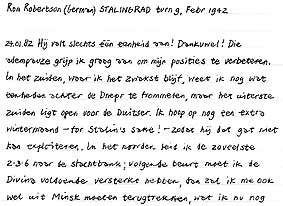 Ron Robertson (German) STALINGRAD turn 9, Febr 1942
24.01.02 Hij valt slechts één eenheid aan! Dankuwel! Die
adempauze grijp ik graag aan om mijn posities te verbeteren.
In het zuiden, waar ik het zwakst blijf, weet ik nog wat
eenheden achter de Dnepr te trommelen, maar het uiterste
zuiden ligt open voor de Duitser. Ik hoop op nog een extra
wintermaand - for Stalin's sake! - zodat hij dat gat niet
kan exploiteren. In het noorden leid ik de zoveelste
2-3-6 naar de slachtbank; volgende beurt moet ik de
Divina voldoende versterkt hebben, dan zal ik me ook
wel uit Minsk moeten terugtrekken, wat ik nu nog